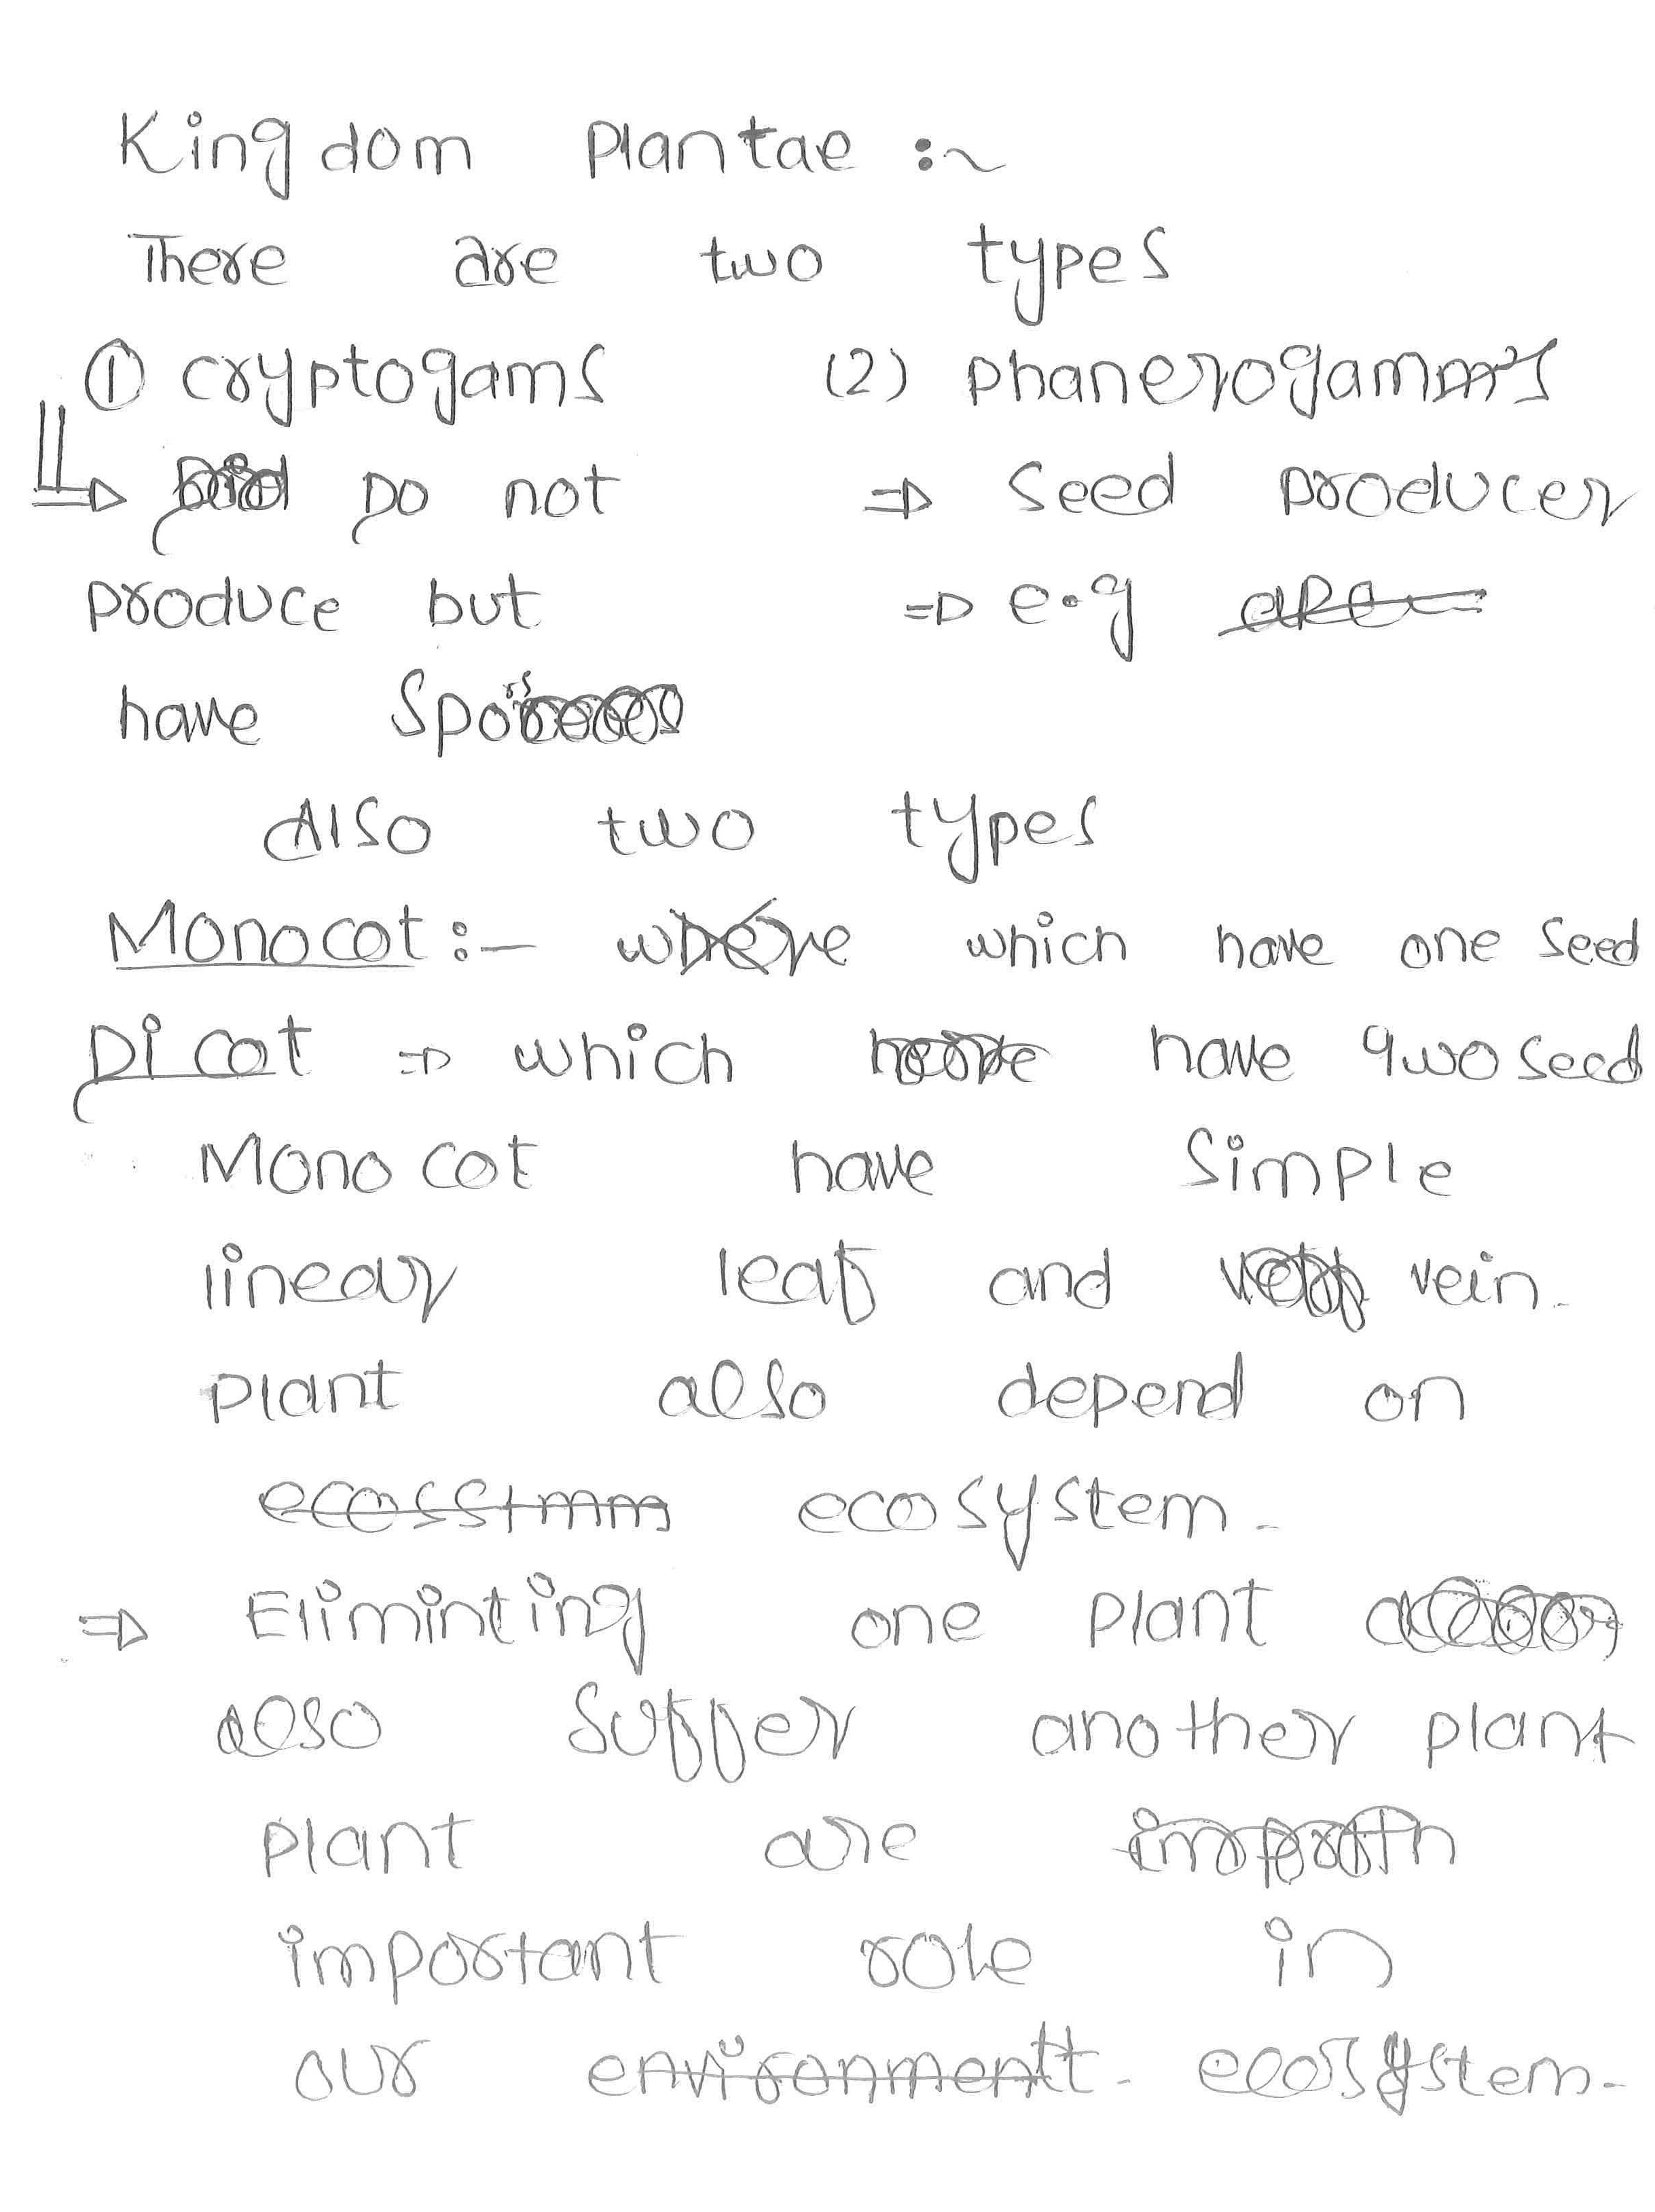 Kingdom Plantae :~
There are two types
① cryptogams (2) Phanerogamms
⇒ Do not ⇒ Seed producer
produce but ⇒ e.g
have Spors
Also two types
Monocot :- where which have one seed
Dicot ⇒ which have two seed
Mono cot have Simple
linear leaf and vein.
Plant also depend on
ecosstmm ecosystem.
⇒ Eliminting one plant
also suffer another plant
plant are
important role in
our environmentt. ecosystem.